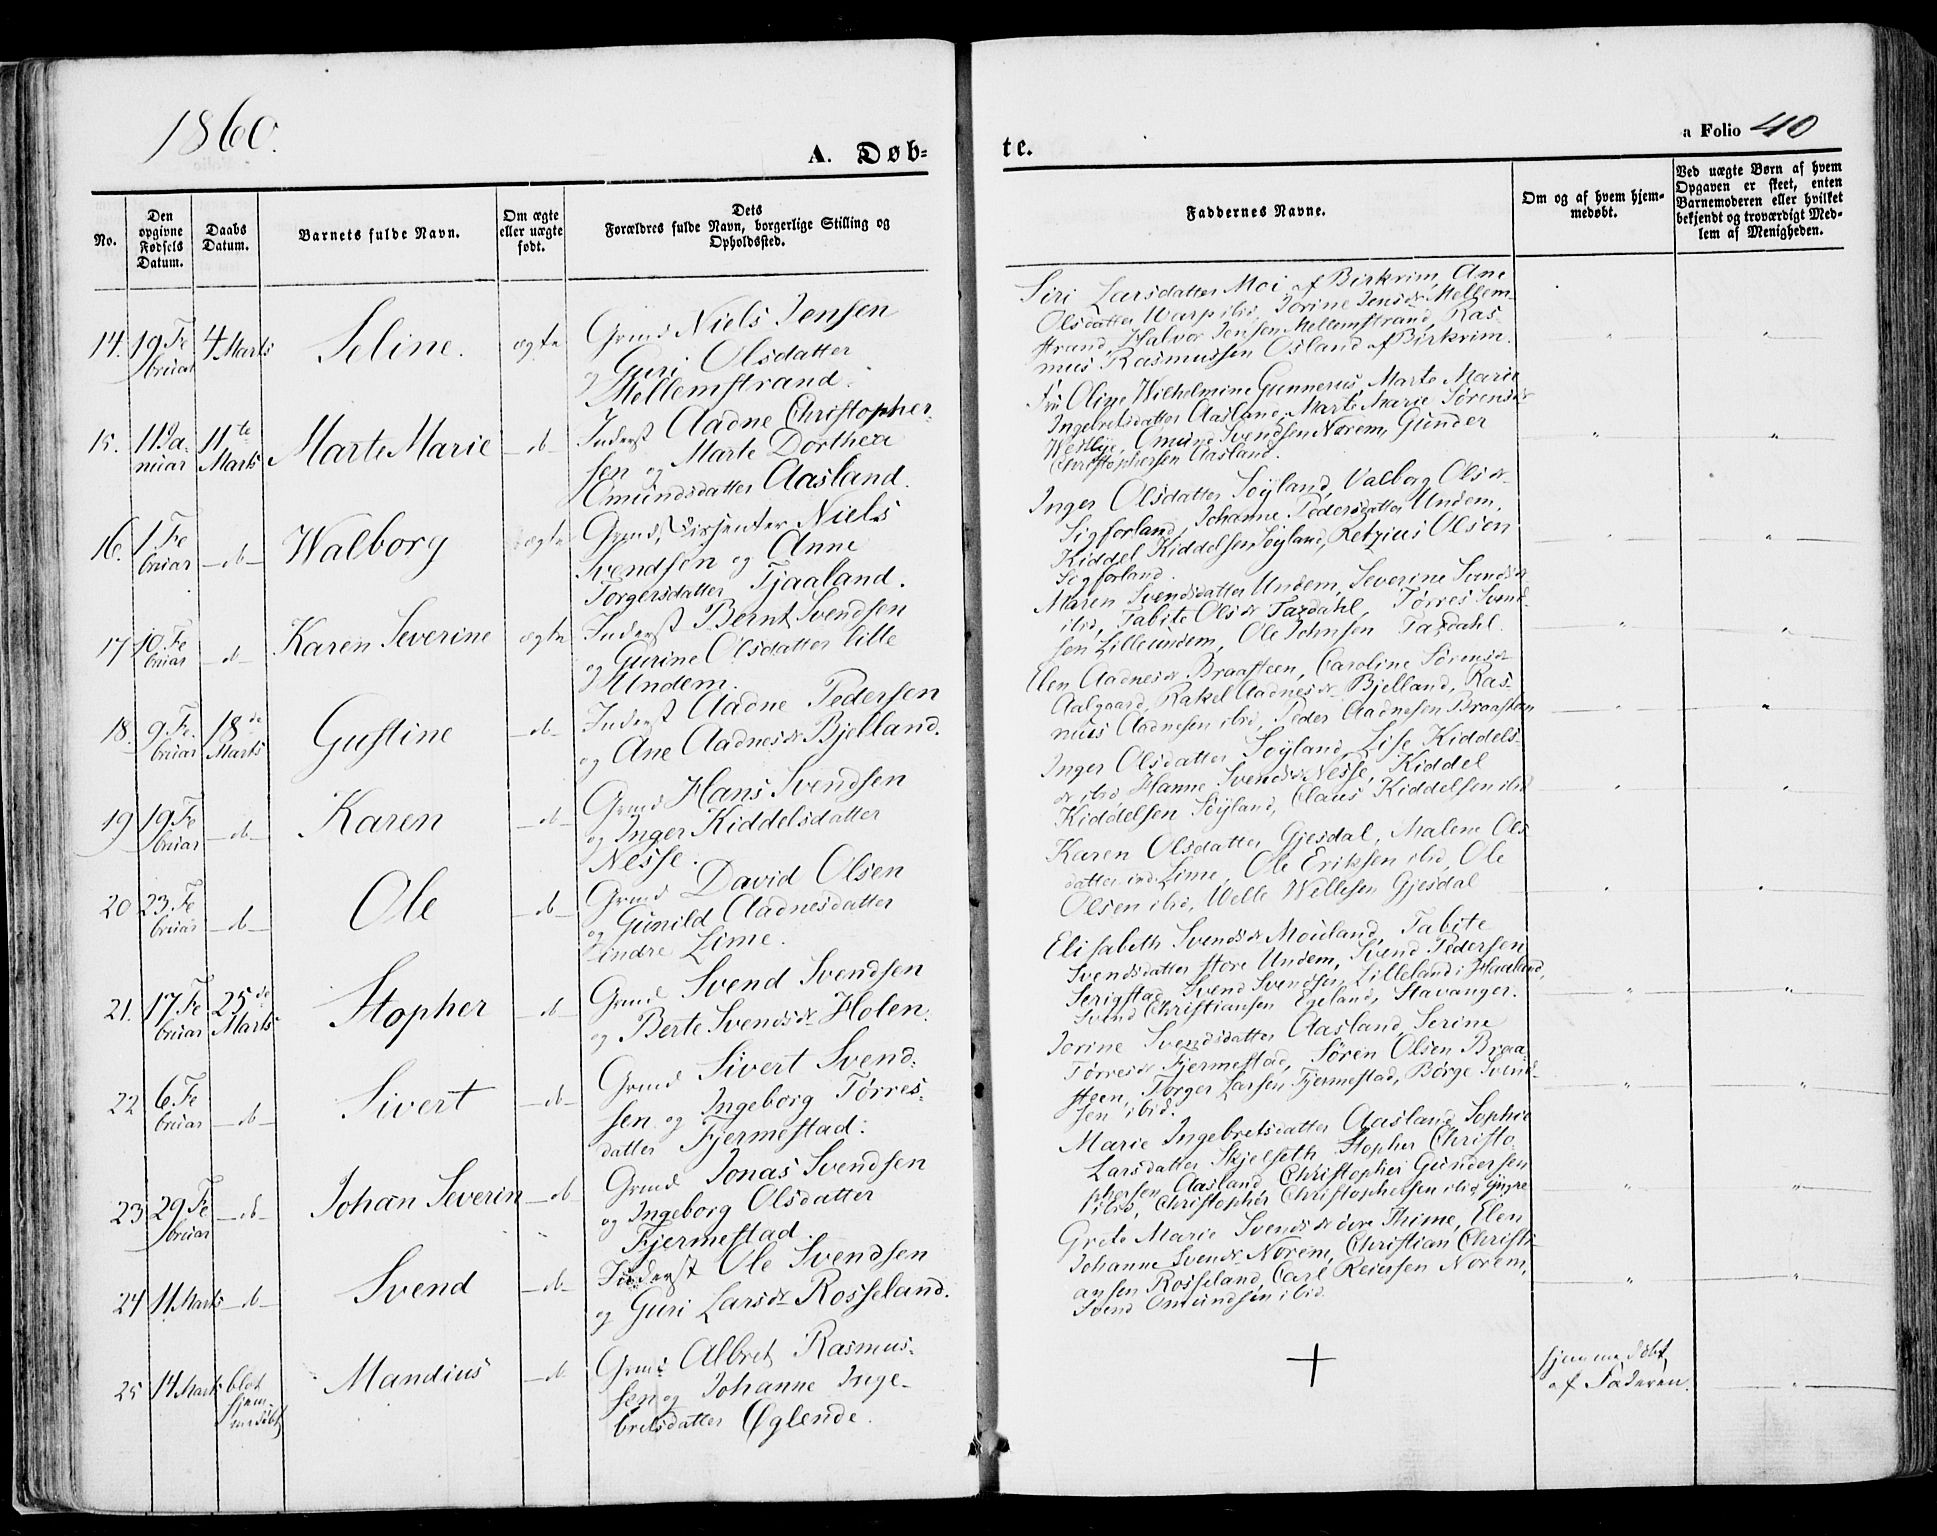 1860.
A. Døb=
te.
a Folio 40
No.
Den
opgivne
Fødsels
Datum.
Daabs
Datum.
Barnets fulde Navn.
Om ægte
eller uægte
født.
Dets
Forældres fulde Navn, borgerlige Stilling og
Opholdssted.
Faddernes Navne.
Om og af hvem hjem-
medøbt.
Ved uægte Børn af hvem
Opgaven er skeet, enten
Barnemoderen eller hvilket
bekjendt og troværdigt Med-
lem af Menigheden.
14. 19 Fe
bruar
4 Marts
Seline.
ægte
Grmd Niels Jensen
og Guri Olsdatter
Mellemstrand.
Siri Larsdatter Moi af Birkrim, Ane
Olsdatter Warp ibid, Jorine Jensdr Mellem-
strand, Halvor Jensen Mellemstrand, Ras-
mus Rasmussen Osland af Birkrim.
15. 11 Ja-
nuar
11te
Marts
Marte Marie
-do-
Inderst Aadne Christopher-
sen og Marte Dorthea
Omundsdatter Aasland.
Fru Olive Wilhelmine Gunnerus, Marte Marie
Ingebretsdatter Aasland, Marte Marie Sørensdr
Westlye, Omund Svendsen Norem, Gunder
Christophersen Aasland.
16. 1. Fe
bruar
-do-
Walborg
ægte
Grmd, Dissenter Niels
Svendsen og Anne
Torgersdatter Tjaaland.
Inger Olsdatter Søyland, Valborg Olsdr
Sigforland, Johanne Pedersdatter Undem,
Kiddel Kiddelsen Søyland, Retzius Olsen
Sogforland.
17 10. Fe
bruar
-do-
Karen Severine
ægte
Inderst Bernt Svendsen
og Gurine Olsdatter lille
Undem.
Maren Svendsdatter Undem, Severine Svendsdr
ibid, Tabite Olsdr Taxdahl, Tørres Svend-
sen Lilleundem, Ole Johnsen Taxdahl.
18. 9. Fe.
bruar
18de
Marts
Gustine
-do-
Inderst Aadne Pedersen
og Ane Aadnesdr Bjelland.
Elen Aadnesdr Braasteen, Caroline Sørensdr
Aalgaard, Rakel Aadnesdr Bjelland, Ras-
mus Aadnesen ibid, Peder Aadnesen Braasteen
19 19 Fe
bruar
-do-
Karen
-do-
Grmd Hans Svendsen
og Inger Kiddelsdatter
Nesse.
Inger Olsdatter Søyland, Lise Kiddels-
dr ibid, Hanne Svendsdr Nesse, Kiddel
Kiddelsen Søyland, Claus Kiddelsen ibid
20 23. Fe
bruar
-do-
Ole
-do-
Grmd David Olsen
og Gunild Aadnesdatter
indre Lime.
Karen Olsdatter Gjesdal, Malene Ols-
datter ind Lime, Ole Eriksen ibid, Ole
Olsen ibid, Welle Wellesen Gjesdal
21. 17. Fe
bruar
25de
Marts
Stopher
-do-
Grmd Svend Svendsen
og Berte Svendsdr Holen.
Elisabeth Svendsdr Mouland, Tabite
Svendsdatter store Undem, Svend Pedersen
Serigstad, Svend Svendsen Lilleland i Haaland,
Svend Christiansen Egeland, Stavanger.
22 6. Fe
bruar
-do-
Sivert
-do-
Grmd Sivert Svend-
sen og Ingeborg Tørres-
datter Fjermestad.
Jorine Svendsdatter Aasland, Serine
Tørresdr Fjermestad, Søren Olsen Braa-
steen, Torger Larsen Fjermestad, Børge Svend-
sen ibid.
23 29 Fe
bruar
-do-
Johan Severin
-do-
Grmd Jonas Svendsen
og Ingeborg Olsdatter
Fjermestad.
Marie Ingebretsdatter Aasland, Sophie
Larsdatter Skjelseth, Stopher Christo-
phersen Aasland, Christopher Gundersen
ibid, Christopher Christophersen ibid yngre
24 11 Marts
-do-
Svend
-do-
Inderst Ole Svendsen
og Guri Larsdr Rosseland.
Grete Marie Svendsdr øvre Thime, Elen
Johanne Svendsdr Norem, Christian Christi-
ansen Rosseland, Carl Reiersen Norem,
Svend Omundsen ibid.
25 14 Marts
blot
hjem-
medøbt
Mandius
-do-
Grmd Albret Rasmus-
sen og Johanne Inge-
bretsdatter Øglende.
hjemmedøbt
af Faderen.